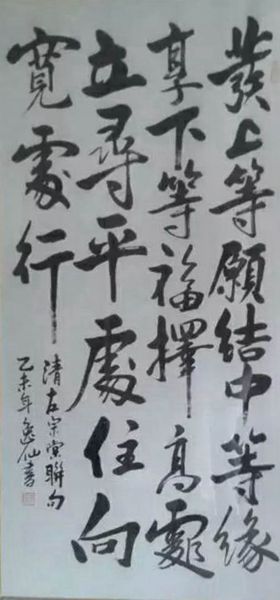 發上等願結中等緣
享下等福擇高處
立尋平處住向
寬處行
清左宗棠聯句
乙未年逸仙書